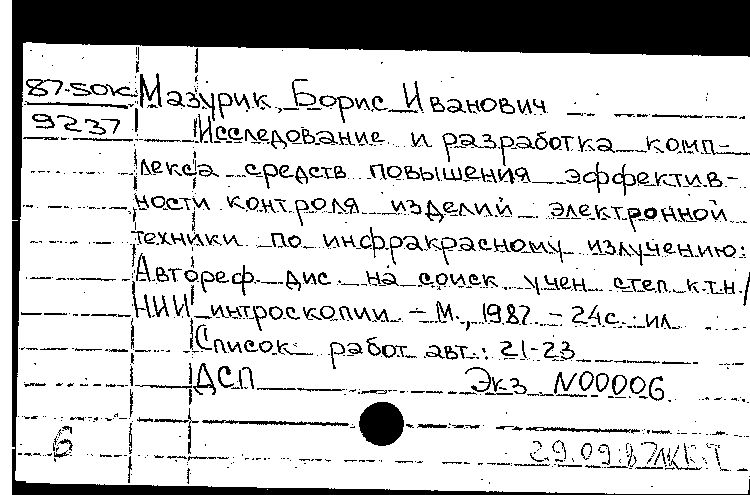 87-50к Мазурик, Борис Иванович
9237 Исследование и разработка комп-
лекса средств повышения эффектив-
ности контроля изделий электронной
техники по инфракрасному излучению:
Автореф. дис. на соиск. учен. степ. к.т.н. /
НИИ интроскопии. - М., 1987. - 24с.: ил.
Список работ авт.: 21-23
ДСП Экз N00006
6 29.09.87